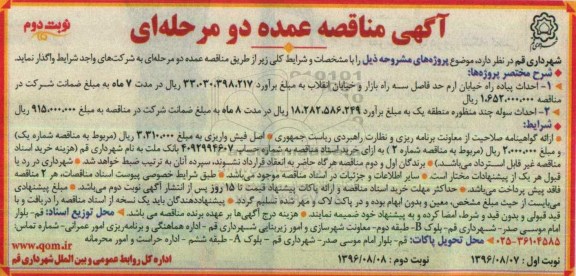 آگهی مناقصه عمده دو مرحله‌ای
نوبت دوم
شهرداری قم در نظر دارد، موضوع پروژه‌های مشروحه ذیل را با مشخصات و شرایط کلی زیر از طریق مناقصه عمده دو مرحله‌ای به شرکت‌های واجد شرایط واگذار نماید.
شرح مختصر پروژه‌ها:
۱- احداث پیاده راه خیابان ارم حد فاصل سه راه بازار و خیابان انقلاب به مبلغ برآورد ۳۳.۰۳۰.۳۹۸.۲۱۷ ریال در مدت ۷ ماه به مبلغ ضمانت شرکت در
مناقصه ۱,۶۵۲,۰۰۰,۰۰۰ ریال
۲- احداث سوله چند منظوره منطقه یک به مبلغ برآورد ۱۸.۲۸۲.۵۸۶.۲۴۹ ریال در مدت ۸ ماه به مبلغ ضمانت شرکت در مناقصه به مبلغ ۹۱۵.۰۰۰.۰۰۰ ریال
شرایط:
ارائه گواهینامه صلاحیت از معاونت برنامه ریزی و نظارت راهبردی ریاست جمهوری اصل فیش واریزی به مبلغ ۳.۳۱۰.۰۰۰ ریال (مربوط به مناقصه شماره یک)
و مبلغ ۲.۰۰۰.۰۰۰ ریال (مربوط به مناقصه شماره ۲) به ازای خرید اسناد مناقصه به شماره حساب ۴۰۹۲۹۹۴۶۰۷ بانک ملت به نام شهرداری قم (هزینه خرید اسناد
مناقصه غیر قابل استرداد می‌باشد) برندگان اول و دوم مناقصه هرگاه حاضر به انعقاد قرارداد نشوند، سپرده آنان به ترتیب ضبط خواهد شد. شهرداری در رد یا
قبول هر یک از پیشنهادات مختار است سایر اطلاعات و جزئیات در اسناد مناقصه موجود می‌باشد. طبق شرایط خصوصی پیوست اسناد مناقصات، هر ۲ مناقصه
فاقد پیش پرداخت می‌باشد حداکثر مهلت خرید اسناد مناقصه و ارائه پاکات پیشنهاد قیمت تا ۱۵ روز پس از انتشار آگهی نوبت دوم می‌باشد. مبلغ پیشنهادی
می‌بایست از حیث مبلغ مشخص، معین و بدون ابهام بوده و در پاکت لاک و مهر شده تسلیم گردد پیشنهاددهندگان باید یک نسخه از اسناد مناقصه را دریافت و با
قید قبولی و بدون قید و شرط، امضا کرده و به پیشنهاد خود ضمیمه نمایند. هزینه درج آگهی‌ها بر عهده برنده مناقصه می باشد. محل توزیع اسناد: قم- بلوار
امام موسی صدر- شهرداری قم- بلوک B- طبقه دوم- معاونت شهرسازی و امور زیربنایی شهرداری قم - اداره هماهنگی و برنامه‌ریزی امور عمرانی- شماره تماس:
۰۲۵-۳۶۱۰۴۵۸۵ محل تحویل پاکات: قم- بلوار امام موسی صدر- شهرداری قم - بلوک A- طبقه ششم - اداره حراست و امور محرمانه
www.qom.ir
نوبت اول: ۱۳۹۶/۰۸/۰۷ نوبت دوم: ۱۳۹۶/۰۸/۰۸
اداره کل روابط عمومی و بین الملل شهرداری قم